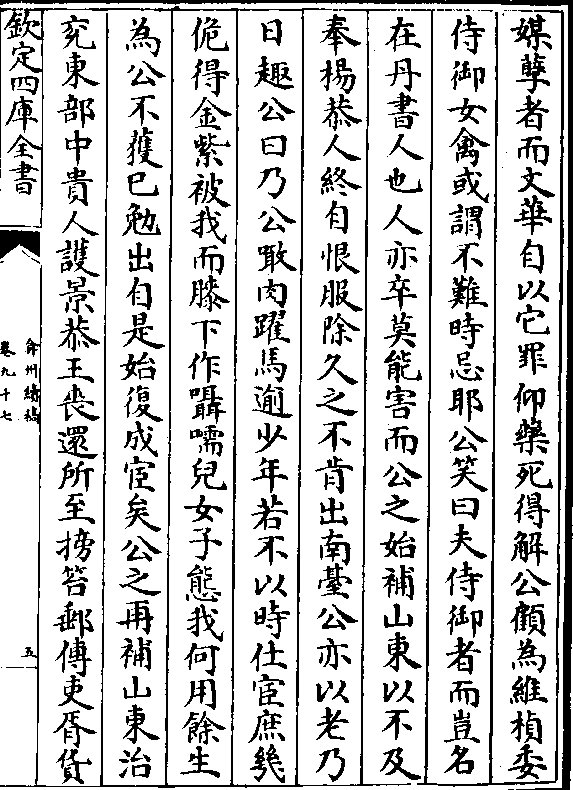 媒孽者而文華自以它罪仰藥死得解公顧為維楨委
侍御女禽或謂不難時忌耶公笑曰夫侍御者而豈名
在丹書人也人亦卒莫能害而公之始補山東以不及
奉楊恭人終自恨服除久之不肯出南臺公亦以老乃
日趣公曰乃公噉肉躍馬逾少年若不以時仕宦庶幾
佹得金紫被我而膝下作囁嚅兒女子態我何用餘生
為公不獲已勉出自是始復成宦矣公之再補山東治
兖東部中貴人護景恭王喪還所至搒笞郵傳吏胥貨
欽定四庫全書
弇州續稿
卷九十七
五